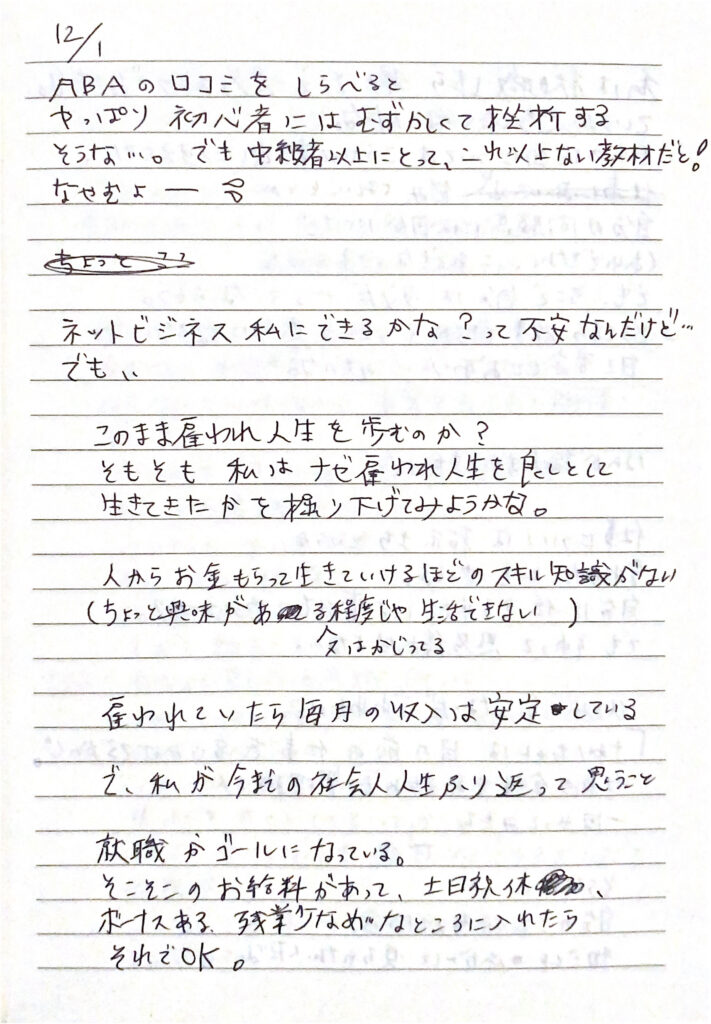 12/1
ABAの口コミを しらべると
やっぱり 初心者には むずかしくて 挫折する
そうな…。でも 中級者以上にとって、これ以上ない教材だと!
なやむよー
ちょっと
ネットビジネス 私にできるかな?って 不安なんだけど…
でも、、
このまま雇われ人生を歩むのか?
そもそも 私は ナゼ雇われ人生を良しとして
生きてきたかを掘り下げてみようかな。
人からお金もらって生きていけるほどのスキル知識がない
(ちょっと興味がある程度じゃ 生活できない )
又はかじってる
雇われていたら毎月の収入は安定している
で、私が今までの社会人人生ふり返って思うこと
就職がゴールになっている。
そこそこのお給料があって、土日祝休、
ボーナスある、残業少なめなところに入れたら
それでOK。